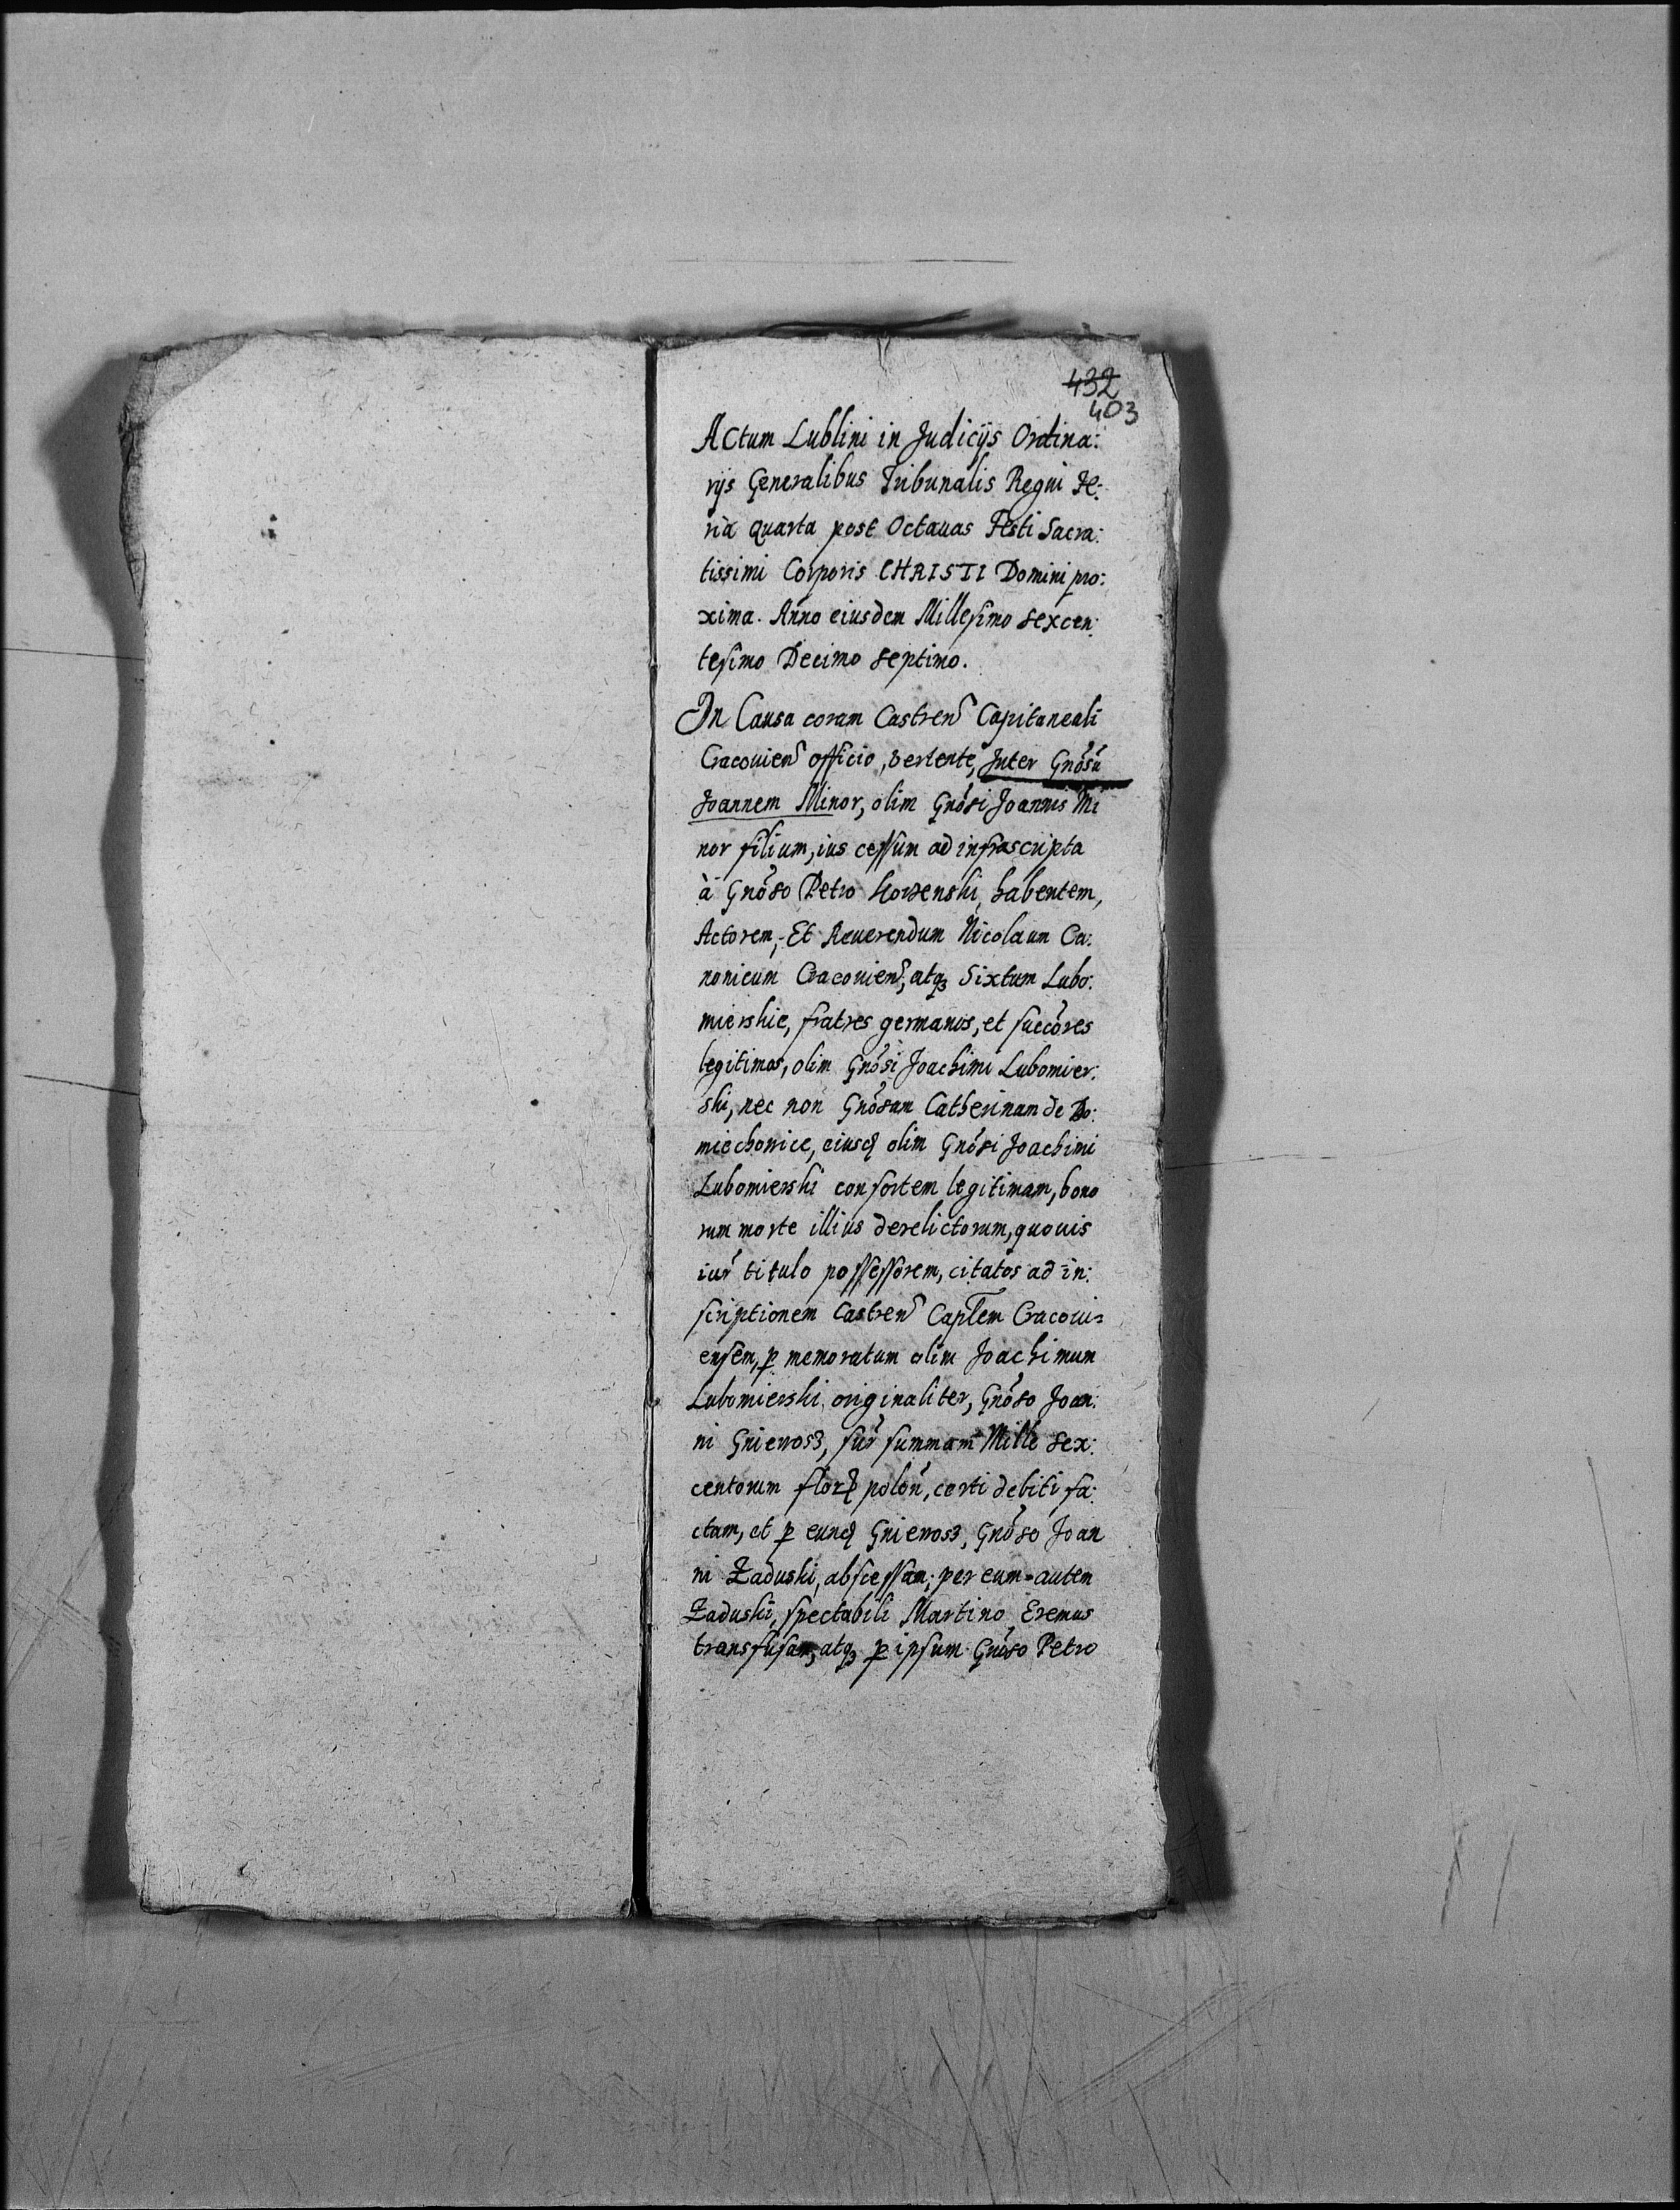 432
403
Actum Lublini in Judicijs Ordina:
rijs Generalibus Tribunalis Regni Fe:
ria quarta post Octauas Festi Sacra:
tissimi Corporis CHRISTI Domini pro:
xima. Anno eiusdem Millesimo sexcen:
tesimo Decimo septimo.
In Causa coram Castren Capitaneali
Cracouien officio, vertente, Inter Gnosū
Joannem Minor, olim Gnosi Joannis Mi
nor filium, ius cessum ad infrascripta
à Gnoso Petro habentem,
Actorem, Et Reuerendum Nicolaum Ca:
nonicum Cracouien, atq3 Sixtum Lubo:
mierskie, fratres germanos, et succōres
legitimos, olim Gnosi Joachimi Lubomier:
ski, nec non Gnosam Catherinam de
eiusd olim Gnosi Joachimi
Lubomierski consortem legitimam, bono
rum morte illius derelictorum, quouis
iur titulo possessorem, citatos ad in:
scriptionem Castren Captem Cracoui=
ensem, p memoratum olim Joachimum
Lubomierski originaliter, Gnoso Joan:
ni Gniewosz, sur summam Mille sex:
centorum flor polon, certi debiti fa:
ctam, et p eund Gniewosz, Gnoso Joan
ni Zaduski, abscessam; per eum=autem
Zaduski, spectabili Martino Eremus
transfusam, atq3 p ipsum Gnoso Petro